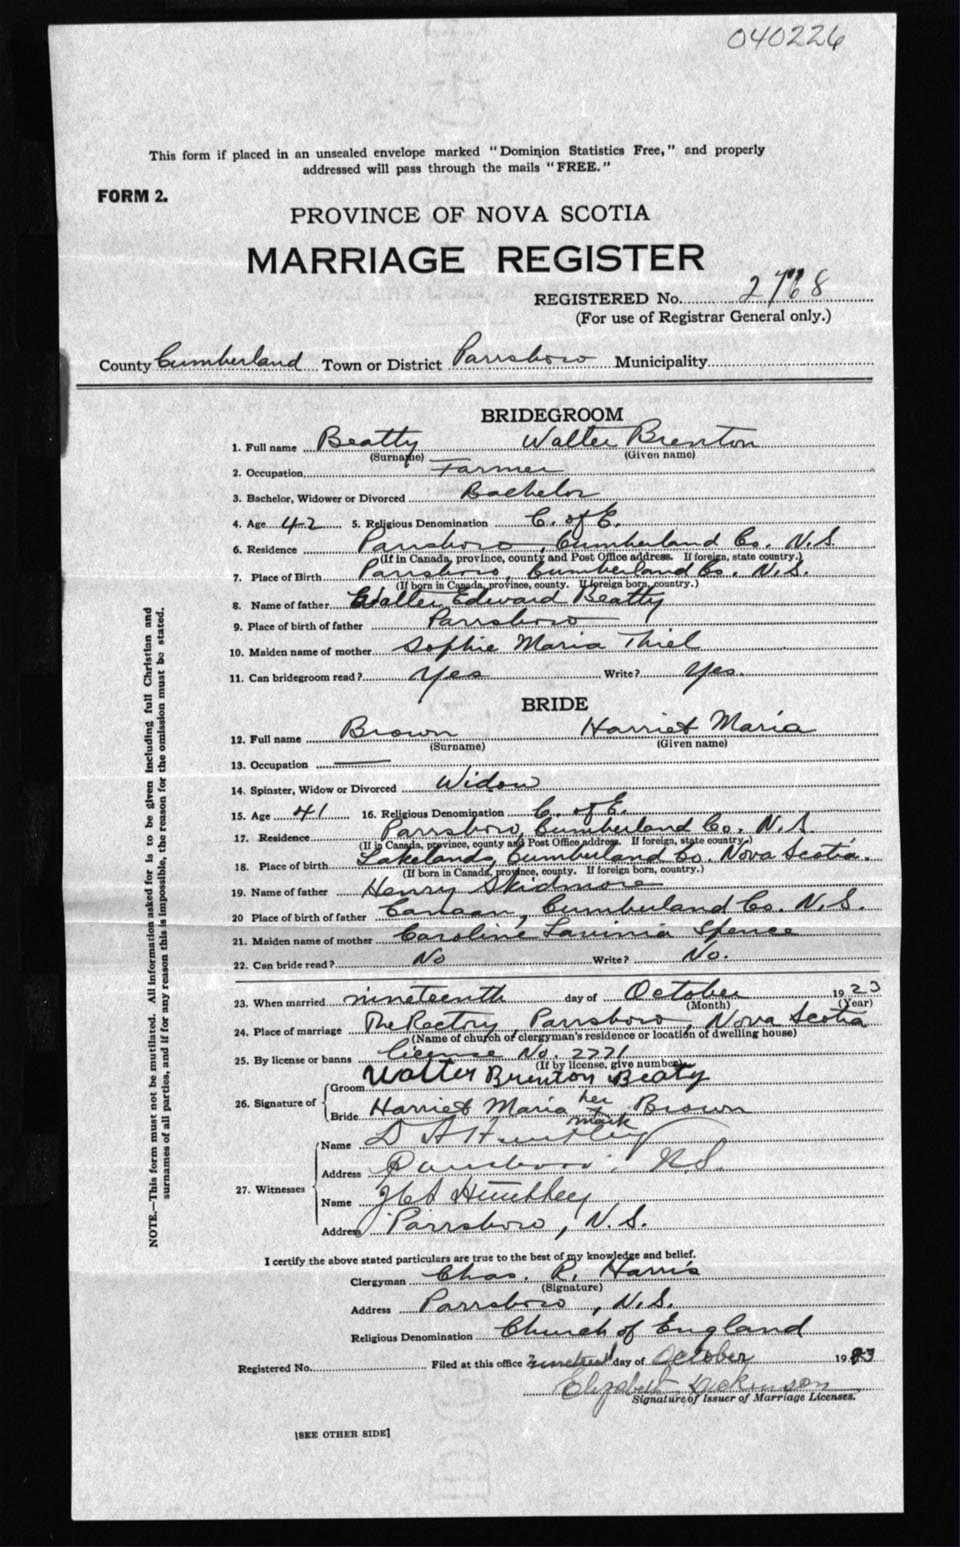 040226
This form if placed in an unsealed envelope marked "Dominion Statistics Free," and properly
addressed will pass through the mails "FREE."
FORM 2.
PROVINCE OF NOVA SCOTIA
MARRIAGE REGISTER
REGISTERED No. 2768
(For use of Registrar General only.)
County Cumberland Town or District Parrsboro Municipality
BRIDEGROOM
1. Full name Beatty Walter Brenton
(Surname) (Given name)
2. Occupation Farmer
3. Bachelor, Widower or Divorced Bachelor
4. Age 42 5. Religious Denomination C. of E.
6. Residence Parrsboro, Cumberland Co. N.S.
(If in Canada, province, county and Post Office address. If foreign, state country.)
7. Place of Birth Parrsboro, Cumberland Co. N.S.
(If born in Canada, province, county. If foreign born, country.)
8. Name of father Walter Edward Beatty
9. Place of birth of father Parrsboro
10. Maiden name of mother Sophie Maria Thiel
11. Can bridegroom read? Yes Write? Yes.
BRIDE
12. Full name Brown Harriet Maria
(Surname) (Given name)
13. Occupation
14. Spinster, Widow or Divorced Widow
15. Age 41 16. Religious Denomination C. of E.
17. Residence Parrsboro, Cumberland Co. N.S.
(If in Canada, province, county and Post Office address. If foreign, state country.)
18. Place of birth Lakelands, Cumberland Co. Nova Scotia.
(If born in Canada, province, county. If foreign born, country.)
19. Name of father Henry Skidmore
20 Place of birth of father Canaan, Cumberland Co. N.S.
21. Maiden name of mother Caroline Lavinia Spence
22. Can bride read? No Write? No.
23. When married nineteenth day of October 1923
(Month) (Year)
24. Place of marriage The Rectory, Parrsboro, Nova Scotia
(Name of church or clergyman's residence or location of dwelling house)
25. By license or banns license No. 2771
(If by license, give number)
26. Signature of Groom Walter Brenton Beaty
Bride Harriet Maria her mark Brown
27. Witnesses Name D A Huntley
Address Parrsboro, N.S.
Name Huntley
Address Parrsboro, N.S.
I certify the above stated particulars are true to the best of my knowledge and belief.
Clergyman Chas. R. Harris
(Signature)
Address Parrsboro, N.S.
Religious Denomination Church of England
Registered No. Filed at this office day of October 1923
Elizabeth Dickinson
Signature of Issuer of Marriage Licenses.
[SEE OTHER SIDE]
NOTE.—This form must not be mutilated. All information asked for is to be given including full Christian and
surnames of all parties, and if for any reason this is impossible, the reason for the omission must be stated.